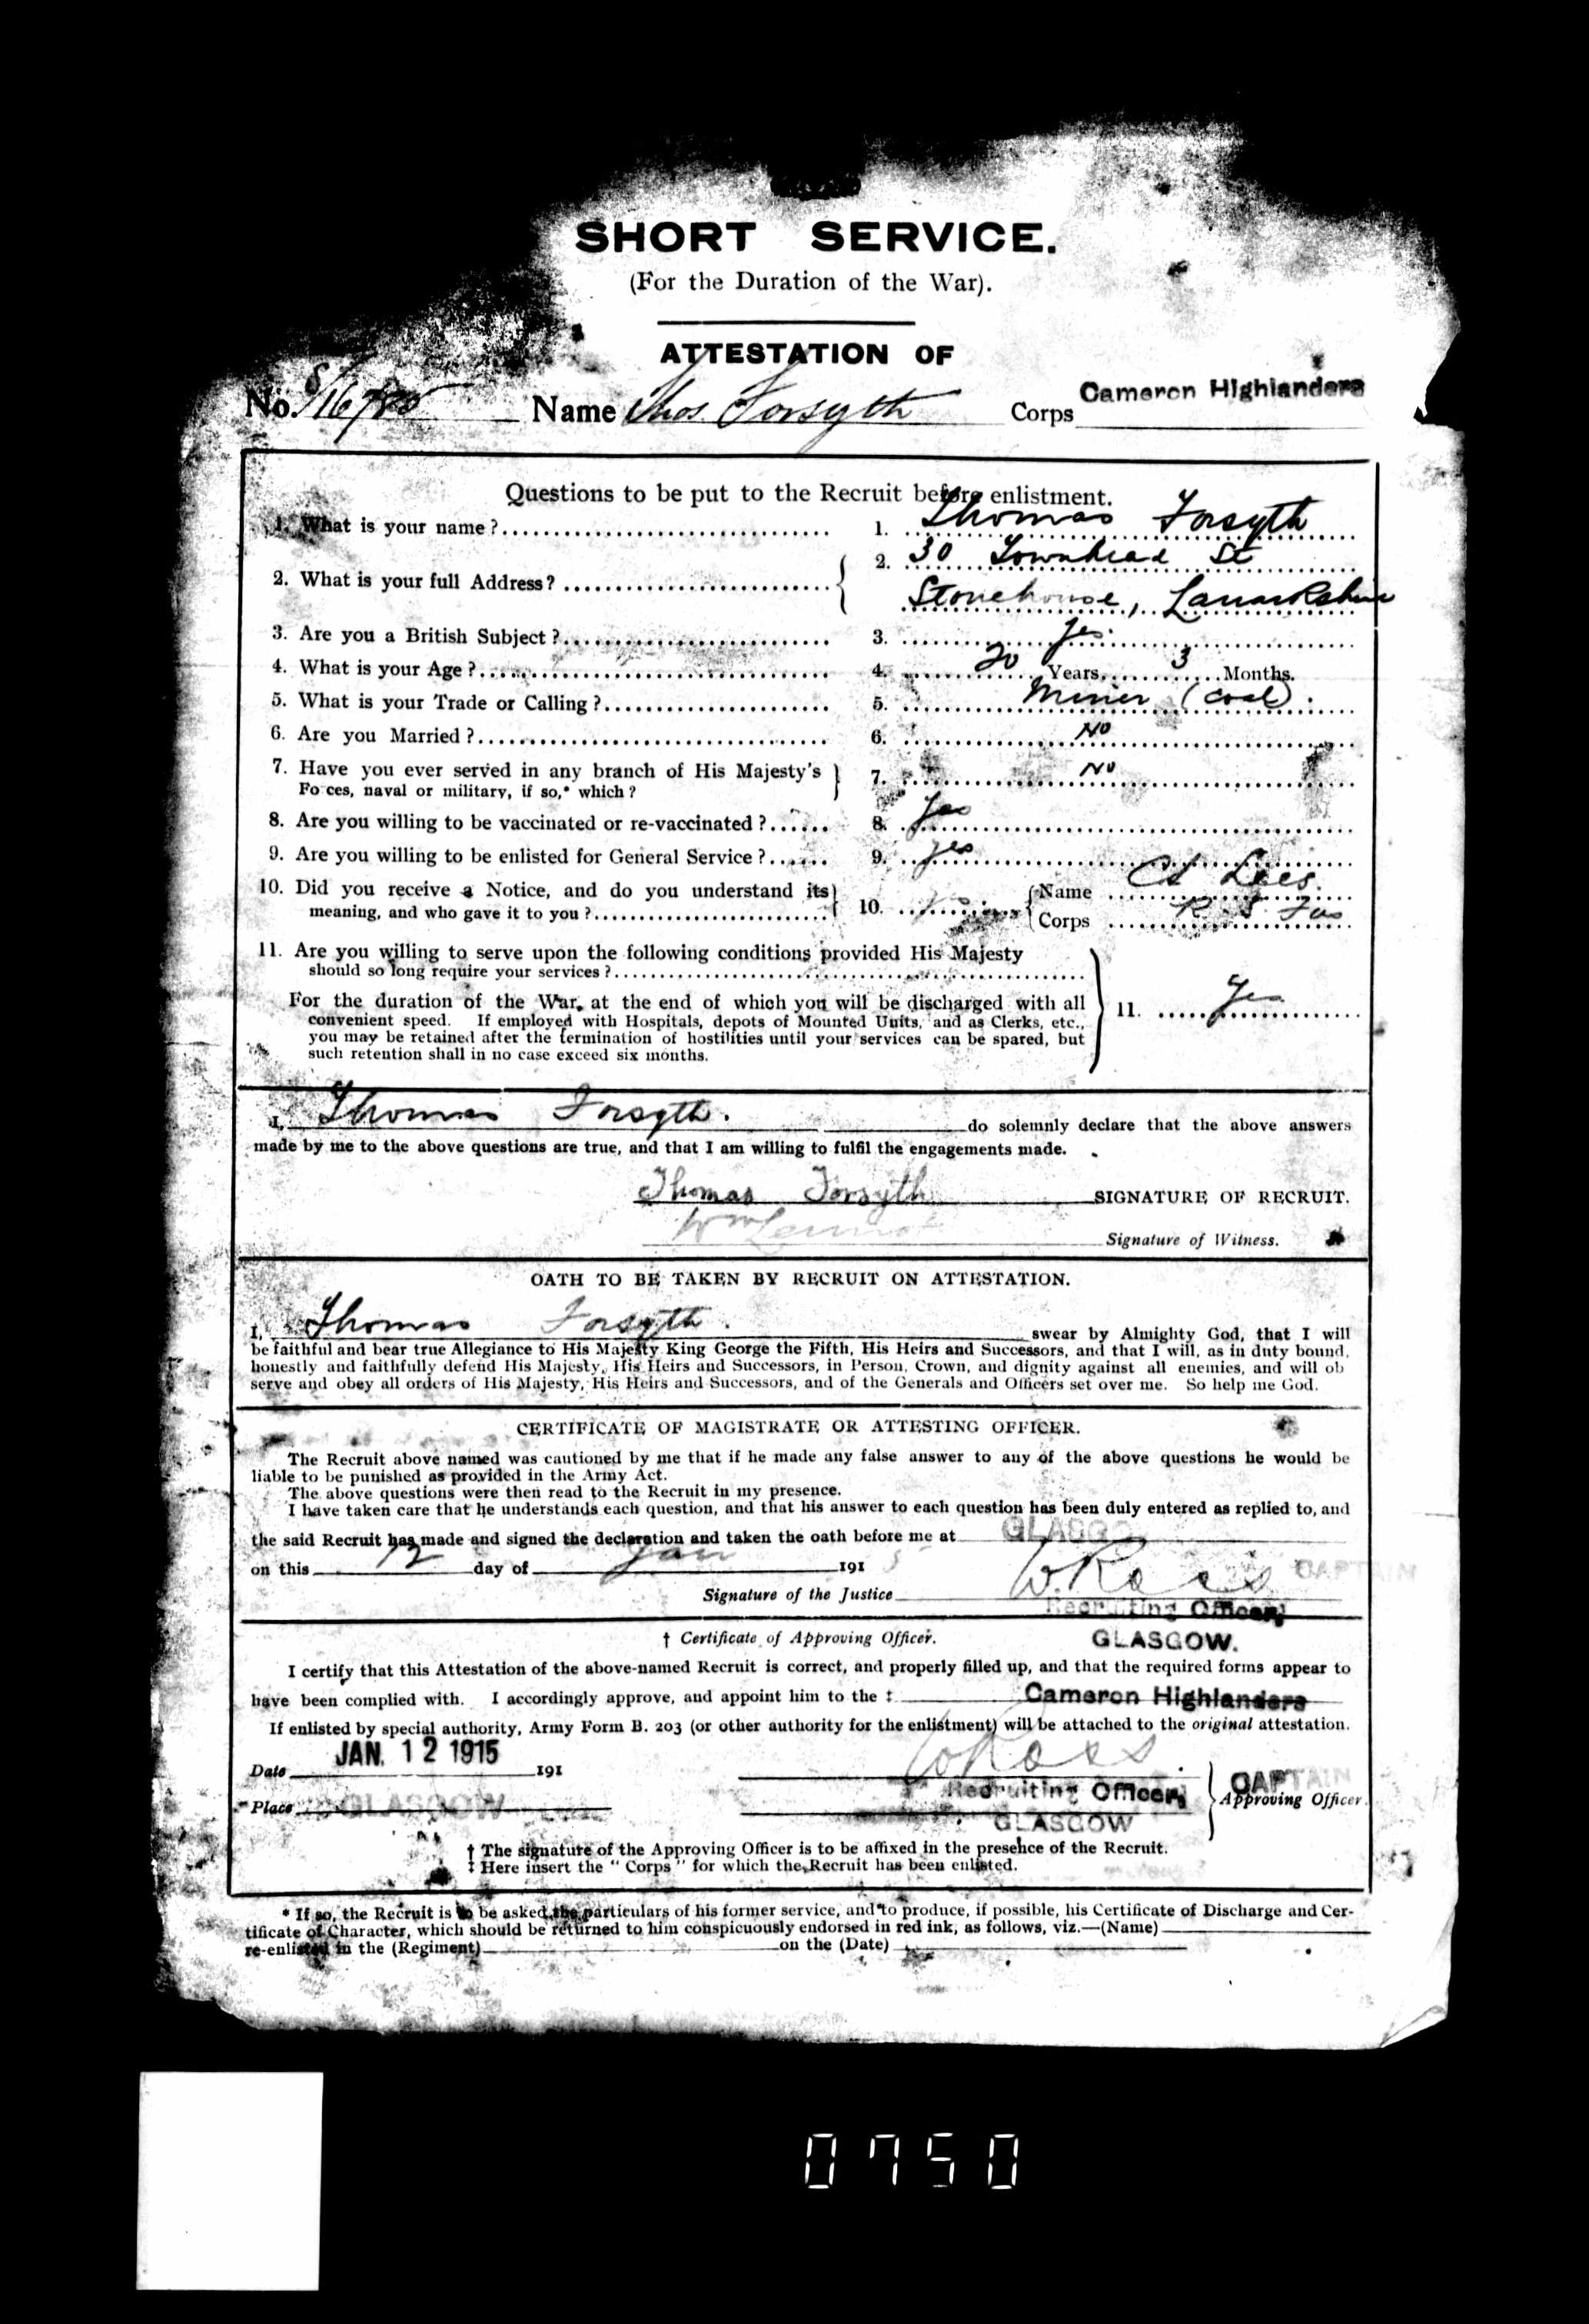 SHORT SERVICE.
(For the Duration of the War).
ATTESTATION OF
No. Name Thos. Forsyth Corps Cameron Highlanders
Questions to be put to the Recruit before enlistment.
1. What is your name ? 1. Thomas Forsyth
2. What is your full Address? 2. 30 Townhead St
Stonehouse, Lanarkshire
3. Are you a British Subject ? 3. Yes.
4. What is your Age ? 4. 20 Years, 3 Months.
5. What is your Trade or Calling ? 5. Miner (coal).
6. Are you Married ? 6. No
7. Have you ever served in any branch of His Majesty's 7. No
Fo ces, naval or military, if so,* which ?
8. Are you willing to be vaccinated or re-vaccinated ? 8. Yes
9. Are you willing to be enlisted for General Service ? 9. Yes
10. Did you receive a Notice, and do you understand its 10. Name Lees.
meaning, and who gave it to you ? Corps R. S. Fus
11. Are you willing to serve upon the following conditions provided His Majesty
should so long require your services ?
For the duration of the War, at the end of which you will be discharged with all 11. Yes
convenient speed. If employed with Hospitals, depots of Mounted Units, and as Clerks, etc.,
you may be retained after the termination of hostilities until your services can be spared, but
such retention shall in no case exceed six months.
I, Thomas Forsyth. do solemnly declare that the above answers
made by me to the above questions are true, and that I am willing to fulfil the engagements made.
Thomas Forsyth SIGNATURE OF RECRUIT.
Wm Signature of Witness.
OATH TO BE TAKEN BY RECRUIT ON ATTESTATION.
I, Thomas Forsyth. swear by Almighty God, that I will
be faithful and bear true Allegiance to His Majesty King George the Fifth, His Heirs and Successors, and that I will, as in duty bound,
honestly and faithfully defend His Majesty, His Heirs and Successors, in Person, Crown, and dignity against all enemies, and will ob
serve and obey all orders of His Majesty, His Heirs and Successors, and of the Generals and Officers set over me. So help me God.
CERTIFICATE OF MAGISTRATE OR ATTESTING OFFICER.
The Recruit above named was cautioned by me that if he made any false answer to any of the above questions he would be
liable to be punished as provided in the Army Act.
The above questions were then read to the Recruit in my presence.
I have taken care that he understands each question, and that his answer to each question has been duly entered as replied to, and
the said Recruit has made and signed the declaration and taken the oath before me at GLASGO
on this 12 day of Jan 191 5 W. Ross CAPTAIN
Signature of the Justice Recruiting Officer,
† Certificate of Approving Officer. GLASGOW.
I certify that this Attestation of the above-named Recruit is correct, and properly filled up, and that the required forms appear to
have been complied with. I accordingly approve, and appoint him to the ‡ Cameron Highlanders
If enlisted by special authority, Army Form B. 203 (or other authority for the enlistment) will be attached to the original attestation.
Date JAN. 12 1915 191 W Ross CAPTAIN
Place GLASGOW Recruiting Officer, Approving Officer.
GLASGOW
† The signature of the Approving Officer is to be affixed in the presence of the Recruit.
‡ Here insert the “ Corps ” for which the Recruit has been enlisted.
* If so, the Recruit is to be asked the particulars of his former service, and to produce, if possible, his Certificate of Discharge and Cer-
tificate of Character, which should be returned to him conspicuously endorsed in red ink, as follows, viz.—(Name)
re-enlisted in the (Regiment) on the (Date)
0750